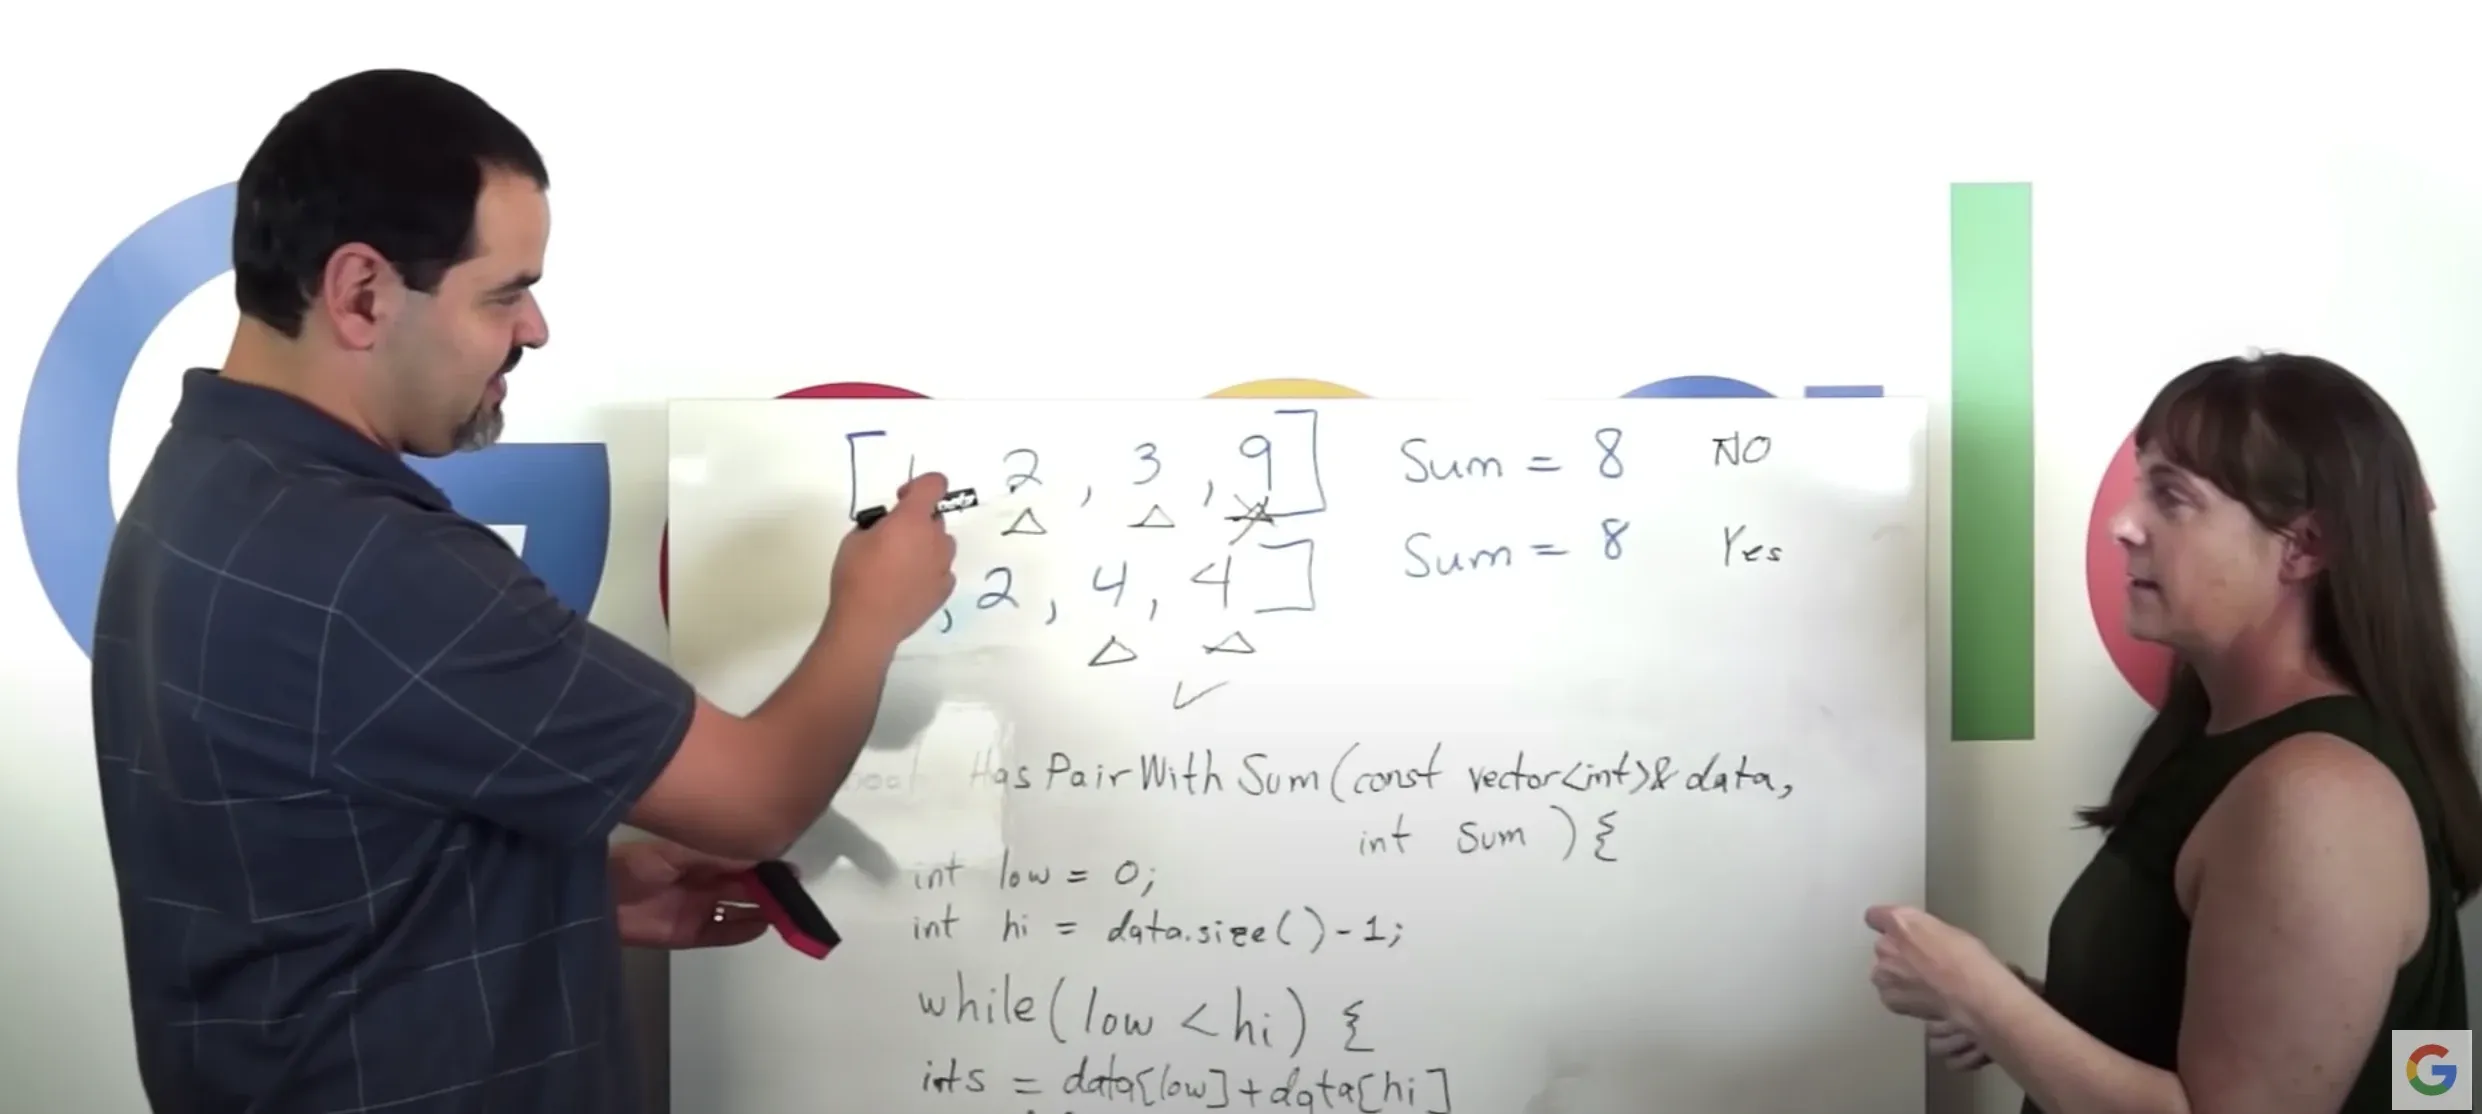 [ 1, 2, 3, 9 ] Sum = 8 NO
, 2, 4, 4 ] Sum = 8 Yes
bool HasPairWithSum(const vector<int>& data,
int sum) {
int low = 0;
int hi = data.size()-1;
while(low < hi) {
int s = data[low]+data[hi]
G